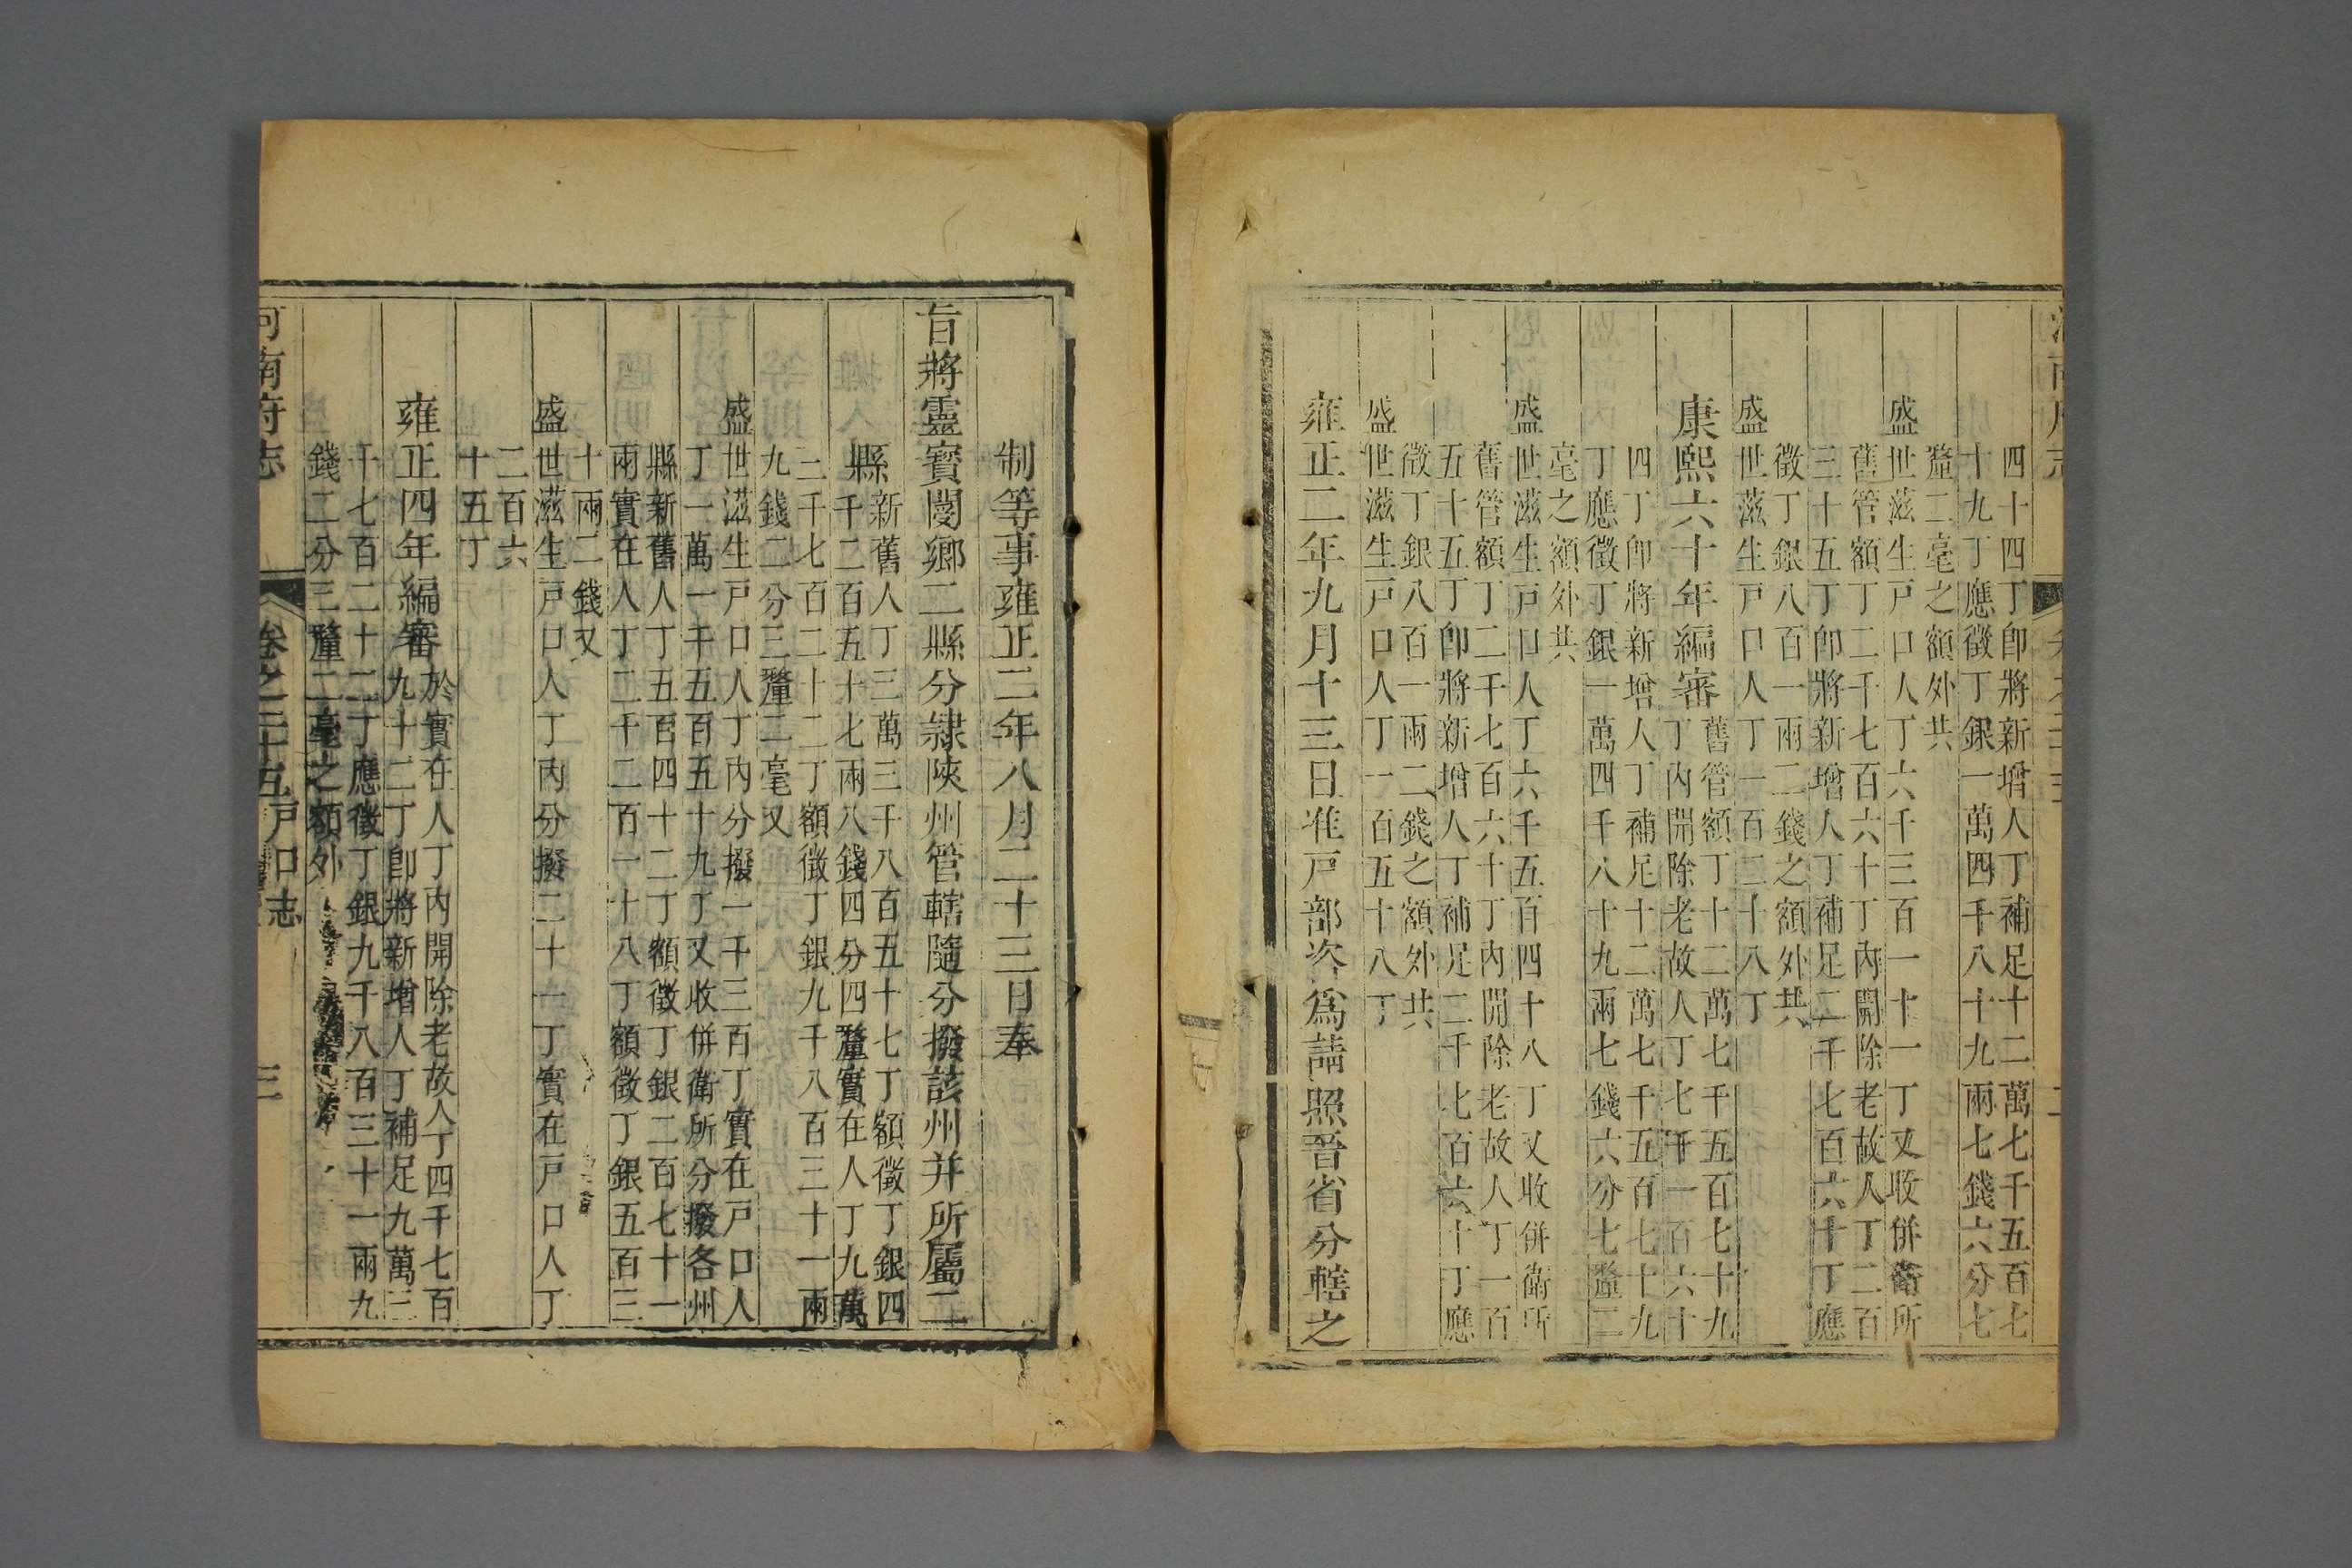 四十四丁即將新增人丁補足十二萬七千五百七
十九丁應徵丁銀一萬四千八十九兩七錢六分七
釐二毫之額外共
盛世滋生戶口人丁六千三百一十一丁又收併衛所
舊管額丁二千七百六十丁內開除老故人丁二百
三十五丁即將新增人丁補足二千七百六十丁應
徵丁銀八百一兩二錢之額外共
盛世滋生戶口人丁一百二十八丁
康熙六十年編審舊管額丁十二萬七千五百七十九
丁內開除老故人丁七千一百六十
四丁即將新增人丁補足十二萬七千五百七十九
丁應徵丁銀一萬四千八十九兩七錢六分七釐二
毫之額外共
盛世滋生戶口人丁六千五百四十八丁又收併衛所
舊管額丁二千七百六十丁內開除老故人丁一百
五十五丁即將新增人丁補足二千七百六十丁應
徵丁銀八百一兩二錢之額外共
盛世滋生戶口人丁一百五十八丁
雍正二年九月十三日准戶部咨爲請照晉省分轄之
制等事雍正二年八月二十三日奉
旨將靈寶閿鄉二縣分隸陝州管轄隨分撥該州并所屬二
縣新舊人丁三萬三千八百五十七丁額徵丁銀四
千二百五十七兩八錢四分四釐實在人丁九萬
三千七百二十二丁額徵丁銀九千八百三十一兩
九錢二分三釐二毫又
盛世滋生戶口人丁內分撥一千三百丁實在戶口人
丁一萬一千五百五十九丁又收併衛所分撥各州
縣新舊人丁五百四十二丁額徵丁銀二百七十一
兩實在人丁二千二百一十八丁額徵丁銀五百三
十兩二錢又
盛世滋生戶口人丁內分撥二十一丁實在戶口人丁
二百六
十五丁
雍正四年編審於實在人丁內開除老故人丁四千七百
九十二丁即將新增人丁補足九萬三
千七百二十二丁應徵丁銀九千八百三十一兩九
錢二分三釐二毫之額外
河南府志 卷之二十五戶口志 三